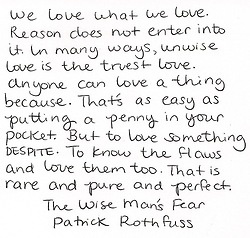 we love what we love.
Reason does not enter into
it. In many ways, unwise
love is the truest love.
Anyone can love a thing
because. That's as easy as
putting a penny in your
pocket. But to love something
DESPITE. To know the flaws
and love them too. That is
rare and pure and perfect.
The Wise Man's Fear
Patrick Rothfuss